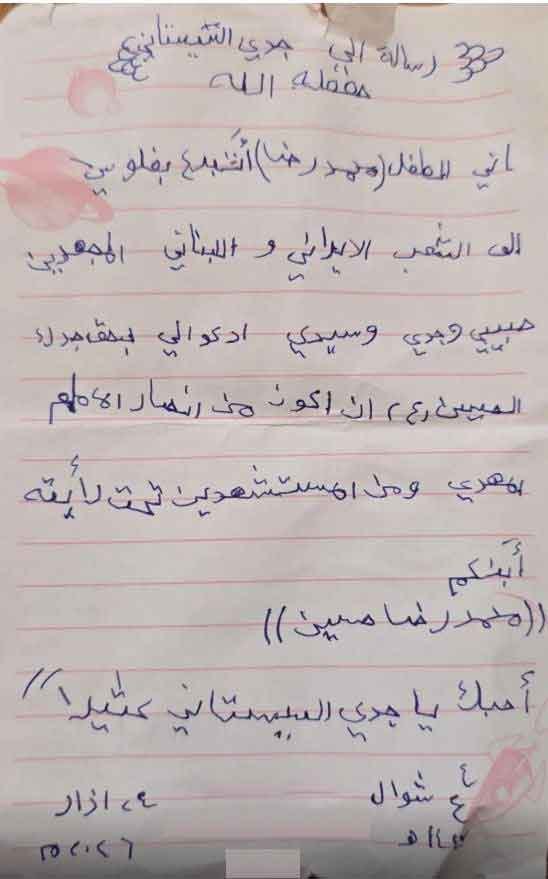 رسالة الى جدي السيستاني
حفظه الله
اني الطفل (محمد رضا) أتبرع بفلوسي
الى الشعب الايراني و اللبناني المجهدين
حبيبي وجدي وسيدي ادعوالي بحق جدك
الحسين (ع) ان اكون من انصار الامام
المهدي ومن المستشهدين تحت رأيته
أبنكم
((محمد رضا حسين))
أحبك يا جدي السيستاني كثيرا //
٤ شوال ٢٤ اذار
٢٠٢٦